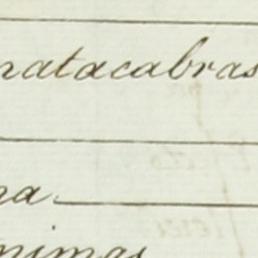 matacabras
na
nimas